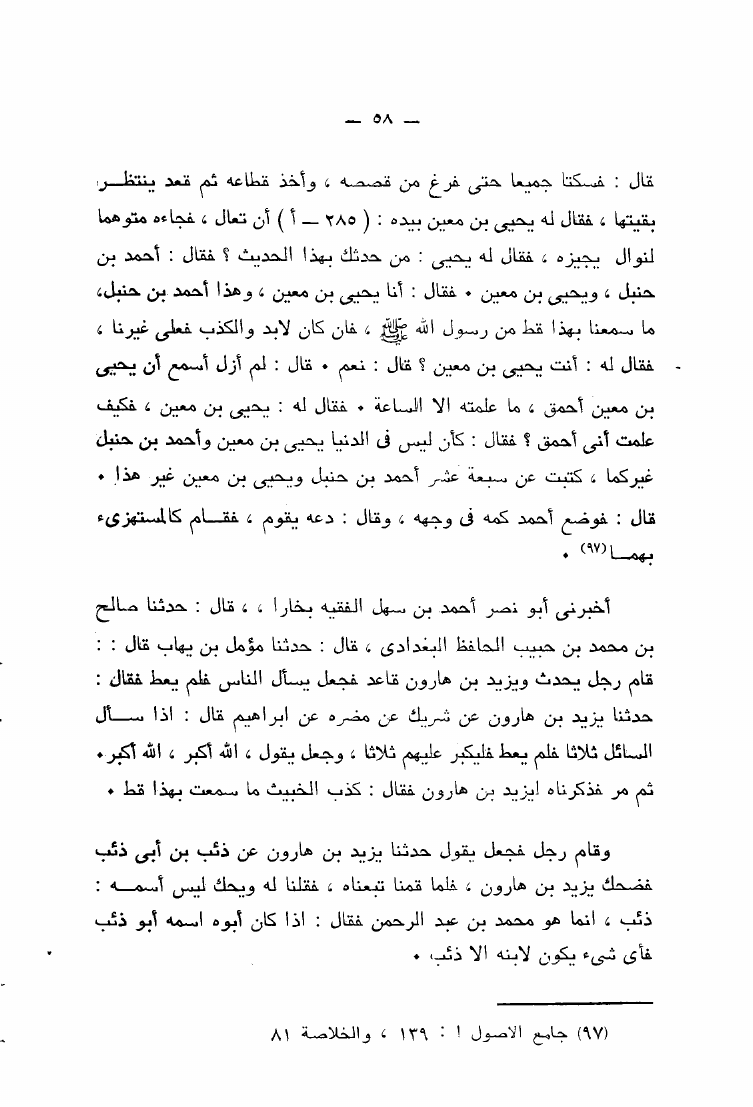 — ٥٨ —
قال : فسكتا جميعا حتى فرغ من قصصه ، وأخذ قطاعه ثم قعد ينتظر
بقيتها ، فقال له يحيى بن معين بيده : ( ٢٨٥ — أ ) أن تعال ، فجاءه متوهما
لنوال يجيزه ، فقال له يحيى : من حدثك بهذا الحديث ؟ فقال : أحمد بن
حنبل ، ويحيى بن معين . فقال : أنا يحيى بن معين ، وهذا أحمد بن حنبل،
ما سمعنا بهذا قط من رسول الله ﷺ ، فان كان لابد والكذب فعلى غيرنا ،
فقال له : أنت يحيى بن معين ؟ قال : نعم . قال : لم أزل أسمع أن يحيى
بن معين أحمق ، ما علمته الا الساعة . فقال له : يحيى بن معين ، فكيف
علمت أنى أحمق ؟ فقال : كأن ليس فى الدنيا يحيى بن معين وأحمد بن حنبل
غيركما ، كتبت عن سبعة عشر أحمد بن حنبل ويحيى بن معين غير هذا .
قال : فوضع أحمد كمه فى وجهه ، وقال : دعه يقوم ، فقـــام كالمستهزىء
بهمــا(٩٧) .
أخبرنى أبو نصر أحمد بن سهل الفقيه بخارا ، ، قال : حدثنا صالح
بن محمد بن حبيب الحافظ البغدادى ، قال : حدثنا مؤمل بن يهاب قال : :
قام رجل يحدث ويزيد بن هارون قاعد فجعل يسأل الناس فلم يعط فقال :
حدثنا يزيد بن هارون عن شريك عن مضره عن ابراهيم قال : اذا ســأل
السائل ثلاثا فلم يعط فليكبر عليهم ثلاثا ، وجعل يقول ، الله أكبر ، الله أكبر.
ثم مر فذكرناه ايزيد بن هارون فقال : كذب الخبيث ما سمعت بهذا قط .
وقام رجل فجعل يقول حدثنا يزيد بن هارون عن ذئب بن أبى ذئب
فضحك يزيد بن هارون ، فلما قمنا تبعناه ، فقلنا له ويحك ليس أسمــه :
ذئب ، انما هو محمد بن عبد الرحمن فقال : اذا كان أبوه اسمه أبو ذئب
فأى شىء يكون لابنه الا ذئب .
(٩٧) جامع الاصول ا : ١٣٩ ، والخلاصة ٨١